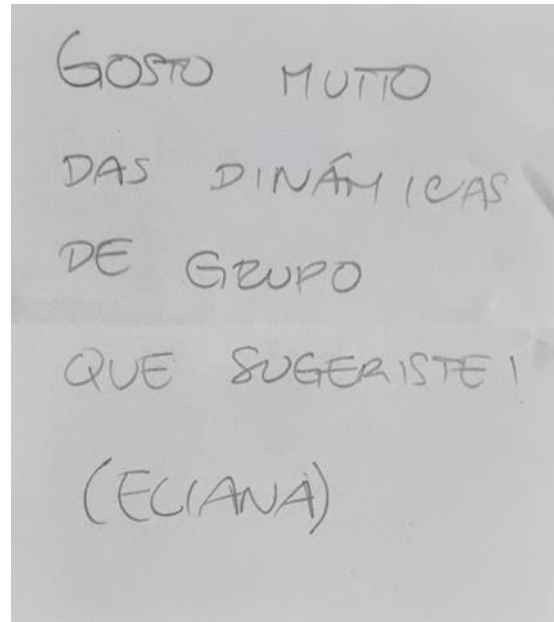 GOSTO MUITO
DAS DINÂMICAS
DE GRUPO
QUE SUGERISTE!
(ELIANA)